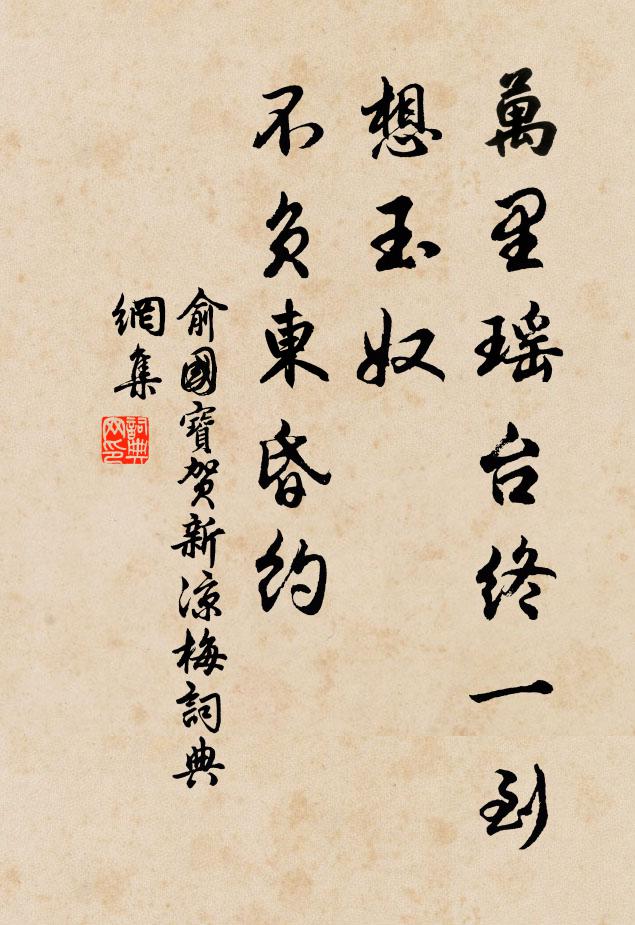 萬里瑶台终一到
想玉奴
不负東昏约
俞國寶賀新涼梅詞典
網集
詞典
网印